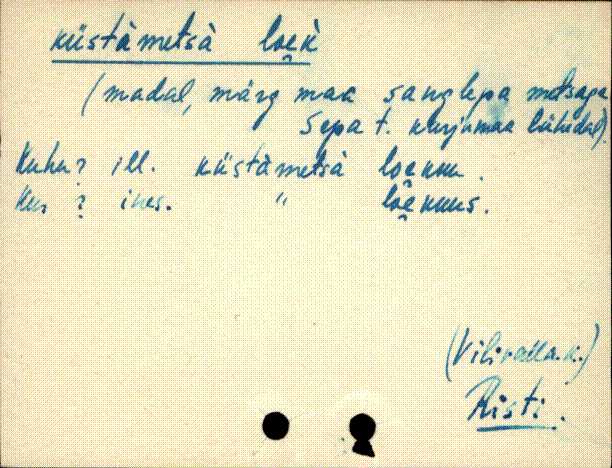 küstämetsä loek̀
(madal, märg maa sanglepa metsaga
Sepa t. karjamaa lähedal).
Kuhu? ill. küstämetsä loekuu.
Kus? ines. " loekuus.
(Vilivalla k.)
Risti.